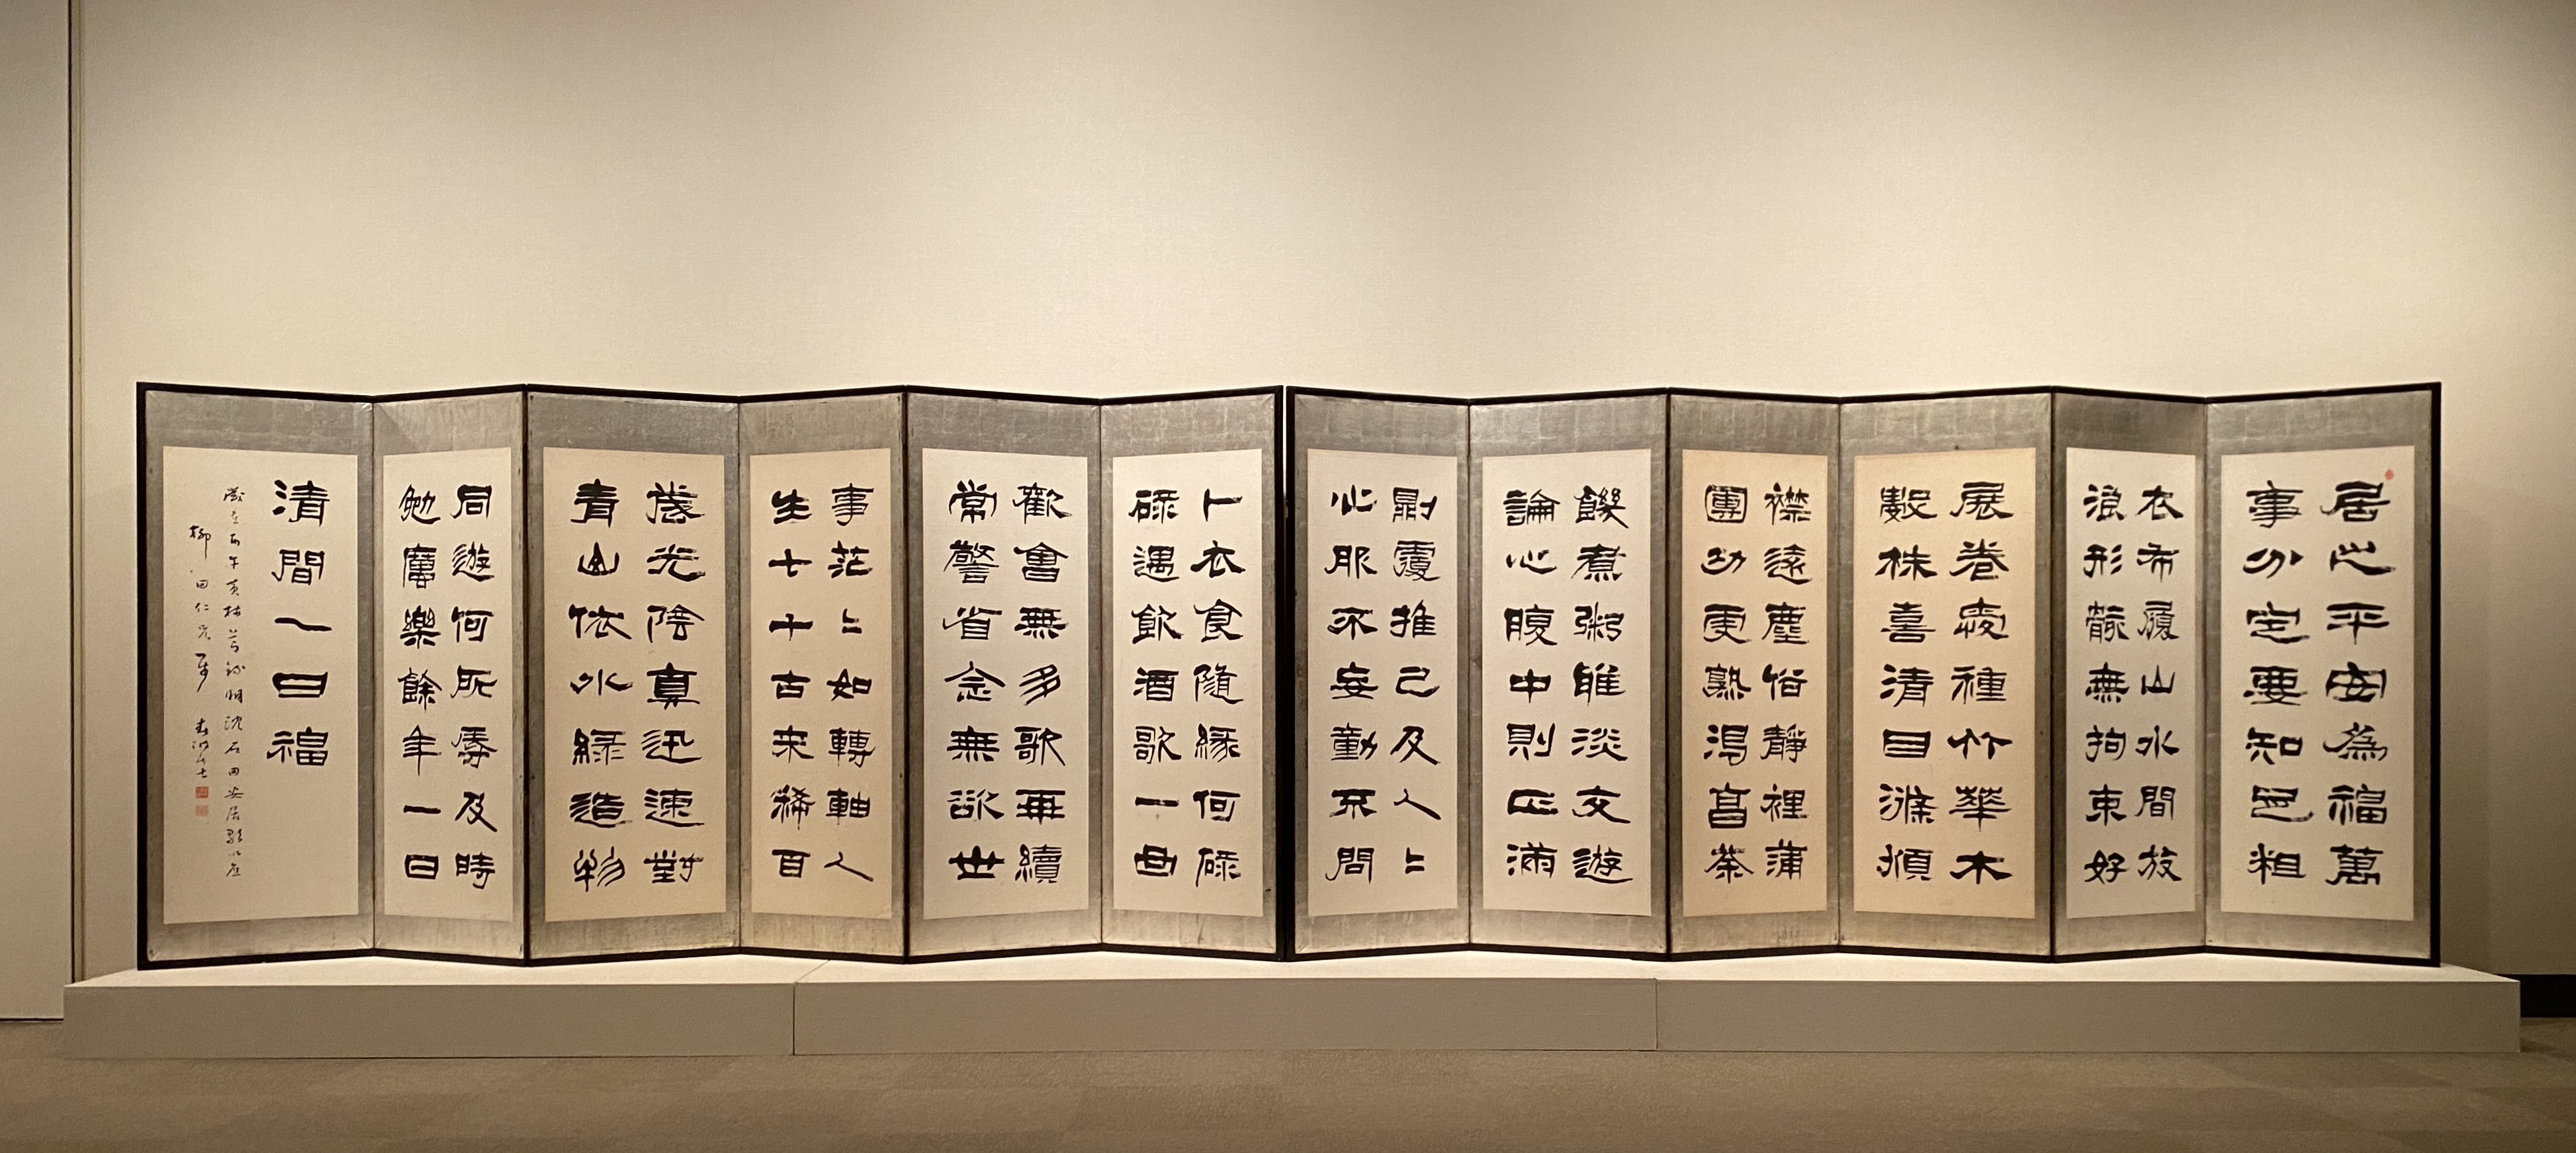 居心平安為福萬
事分定要知足粗
衣布履山水間放
浪形骸無拘束好
展卷愛種竹華木
數株喜清目滌煩
襟遠塵俗靜裡蒲
團功更熟渴烹茶
饑煮粥雖淡交遊
論心腹中則正滿
則覆推己及人〻
心服不妄動不問
卜衣食隨緣何碌
碌遇飲酒歌一曲
歡會無多歌再續
常警省念無欲世
事茫〻如轉軸人
生七十古来稀百
歲光陰真迅速對
青山依水綠造物
同遊何所辱及時
勉厲樂餘年一日
清間一日福
歲在丙午黃梅節錄明沈石田安居歌以應
柳田仁兄屬 春洲居士